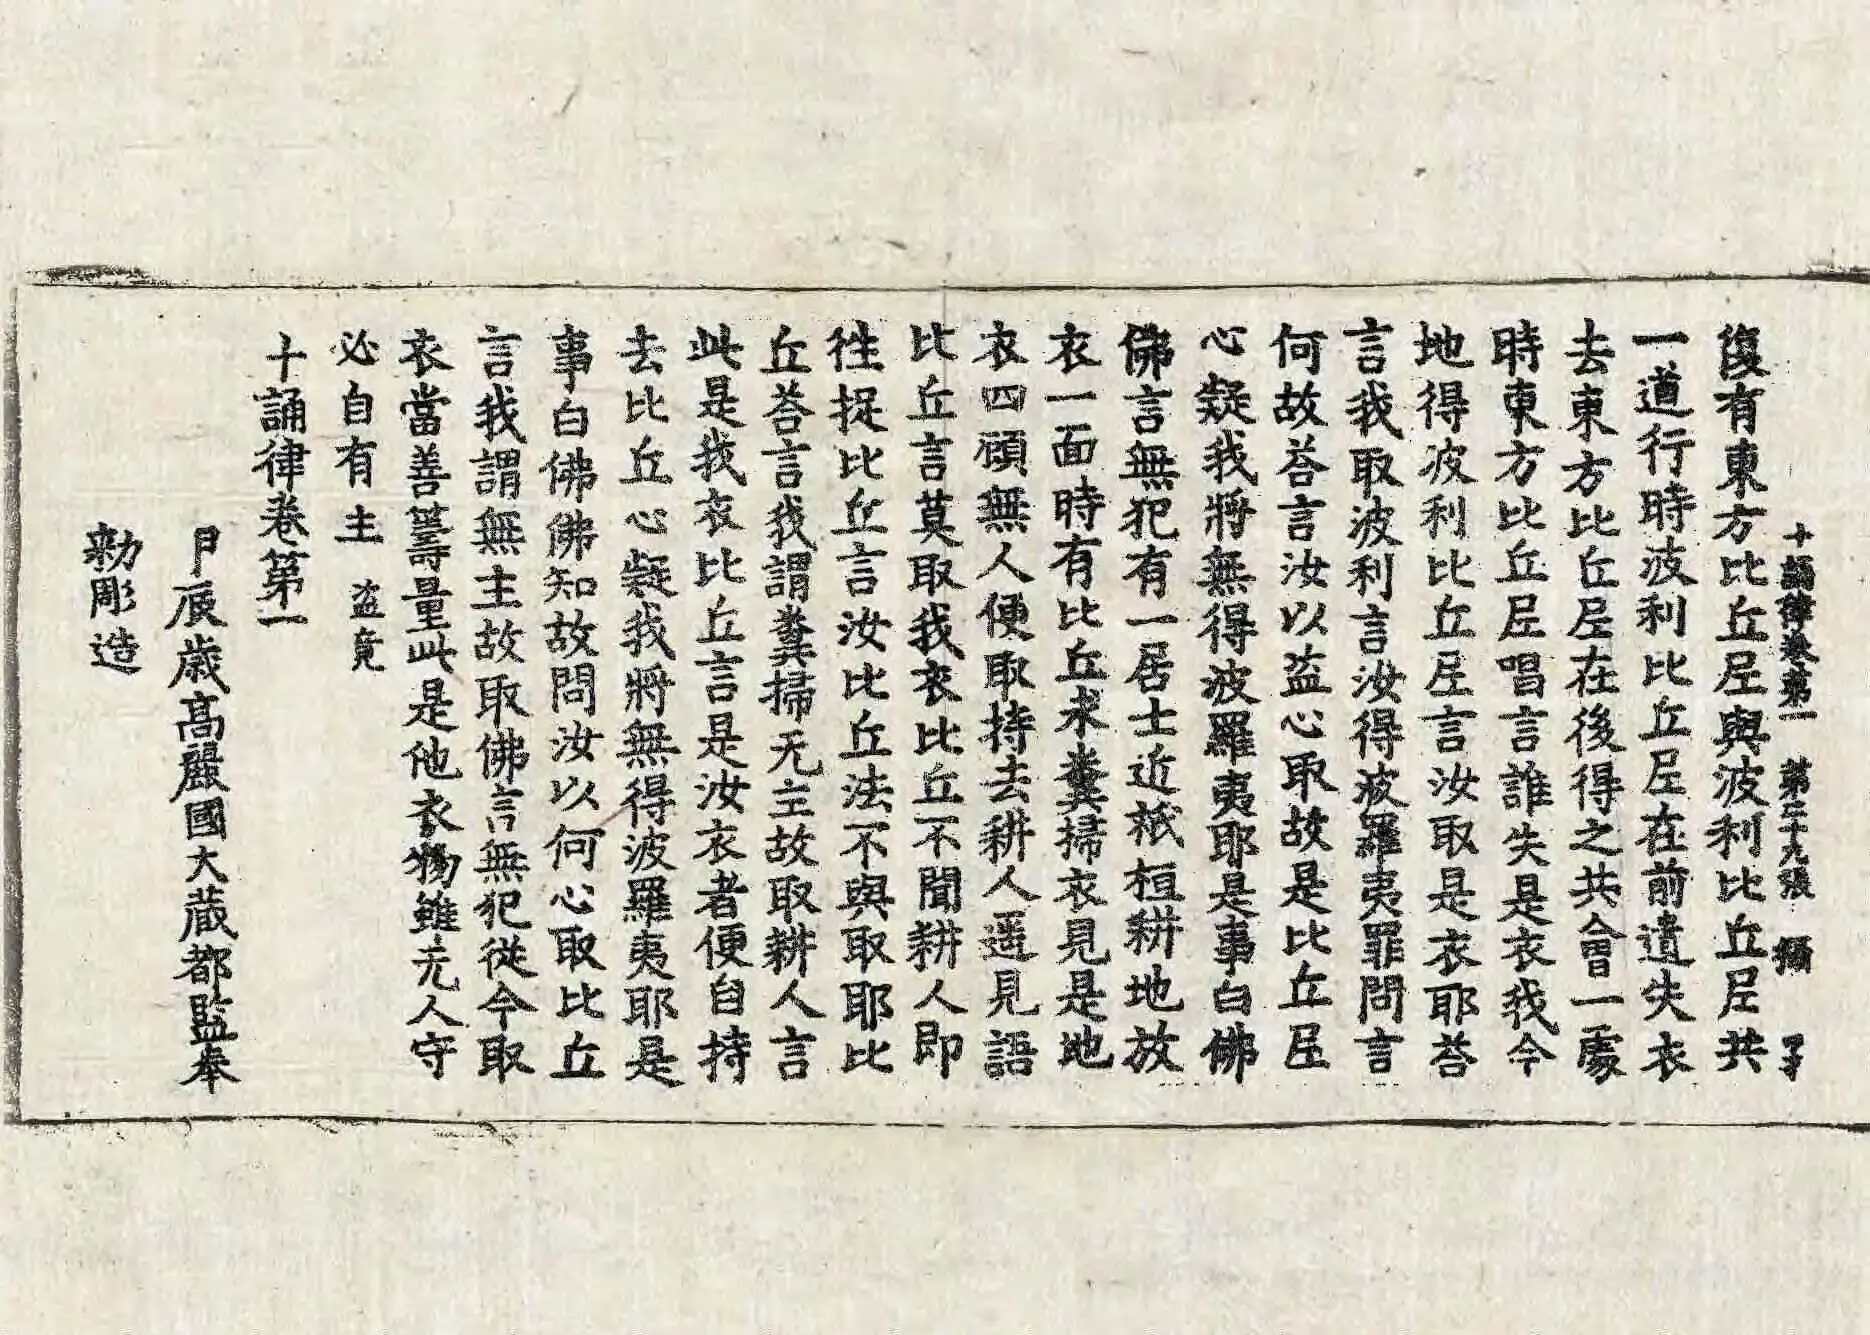 十誦律卷第一 第三十九張 攝 
復有東方比丘尼與波利比丘尼共
一道行時波利比丘尼在前遺失衣
去東方比丘尼在後得之共會一處
時東方比丘尼唱言誰失是衣我今
地得波利比丘尼言汝取是衣耶荅
言我取波利言汝得波羅夷罪問言
何故荅言汝以盗心取故是比丘尼
心疑我將無得波羅夷耶是事白佛
佛言無犯有一居士近祇桓耕地放
衣一面時有比丘求糞掃衣見是地
衣四顧無人便取持去耕人遥見語
比丘言莫取我衣比丘不聞耕人即
往捉比丘言汝比丘法不與取耶比
丘荅言我謂糞掃无主故取耕人言
此是我衣比丘言是汝衣者便自持
去比丘心疑我將無得波羅夷耶是
事白佛佛知故問汝以何心取比丘
言我謂無主故取佛言無犯從今取
衣當善籌量此是他衣物雖无人守
必自有主 盗竟
十誦律卷第一
甲辰歳高麗國大藏都監奉
勑彫造